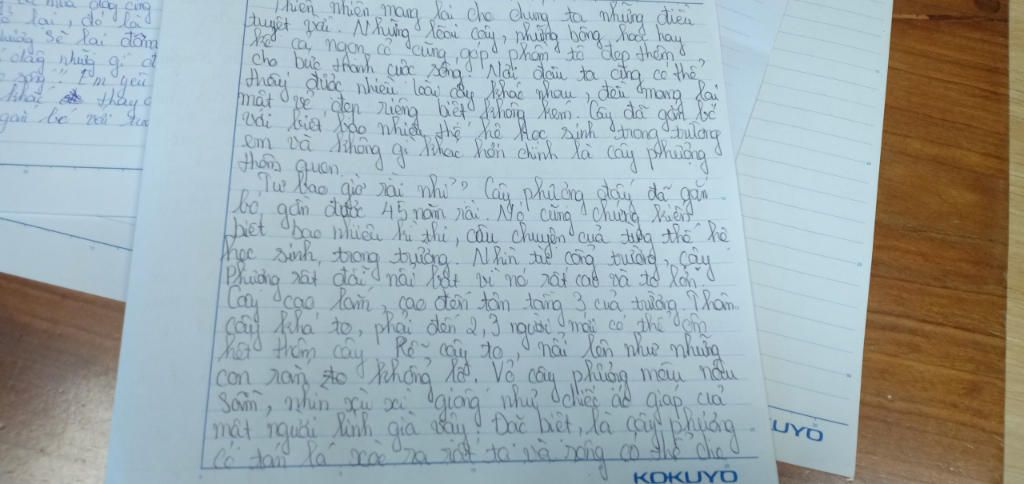 Thiên nhiên mang lại cho chúng ta những điều
tuyệt vời. Những loài cây, những bông hoa hay
kể cả ngọn cỏ cũng góp phần tô đẹp thêm
cho bức tranh cuộc sống. Nơi đâu ta cũng có thể
thấy được nhiều loài cây khác nhau, đều mang lại
một vẻ đẹp riêng biệt không kém. Cây đã gắn bó
với biết bao nhiêu thế hệ học sinh trong trường
em và không gì khác hơn chính là cây phượng
thân quen.
Từ bao giờ rồi nhỉ? Cây phượng đấy đã gắn
bó gần được 45 năm rồi. Nó cùng chứng kiến
biết bao nhiêu kì thi, câu chuyện của từng thế hệ
học sinh trong trường. Nhìn từ cổng trường, cây
phượng rất đỗi nổi bật vì nó rất cao và to lớn.
Cây cao lắm, cao đến tận tầng 3 của trường. Thân
cây khá to, phải đến 2, 3 người mới có thể ôm
hết thân cây. Rễ cây to, nổi lên như những
con rắn khổng lồ. Vỏ cây phượng màu nâu
sẫm, nhìn xù xì giống như chiếc áo giáp của
một người lính già vậy. Đặc biệt, là cây phượng
có tán lá xòe ra rất to và rộng có thể che
KOKUYO
UYO
lại, đó là
sẽ lại
những gì
Em yêu
khác thay
gắn bó với